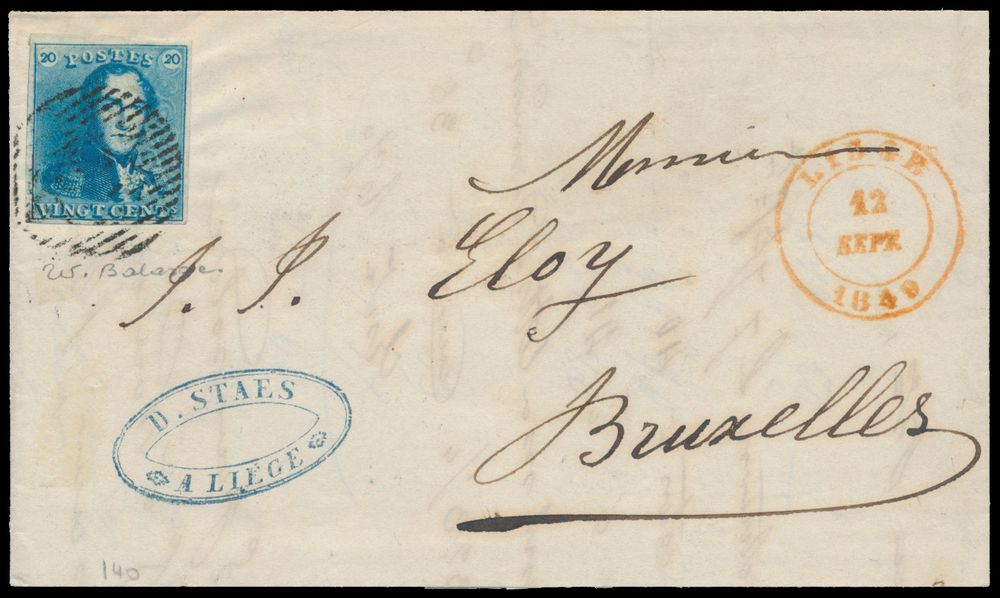 20 POSTES 20
VINGT CENTS
Monsieur
J. P. Eloy
Bruxelles
LIEGE
12
SEPT
1849
D. STAES
A LIÉGE
140